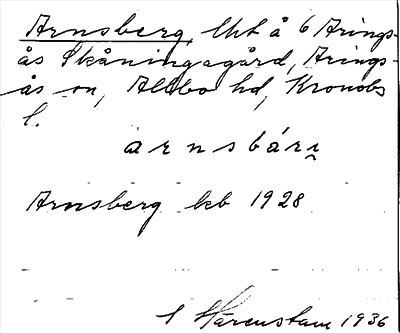 Arnsberg, Lht å 6 Arings-
ås Skåningagård, Arings-
ås sn, Allbo hd, Kronobs
l.
arnsbárį
Arnsberg kb 1928
S Härenstam 1936